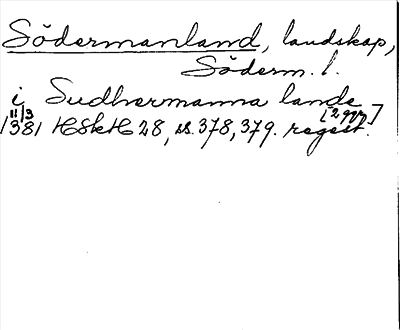 Södermanland, landskap,
Söderm. l.
i Sudhermanna lande
11/3 [2 ggr]
1381 HSkH 28, ss. 378, 379. regest.